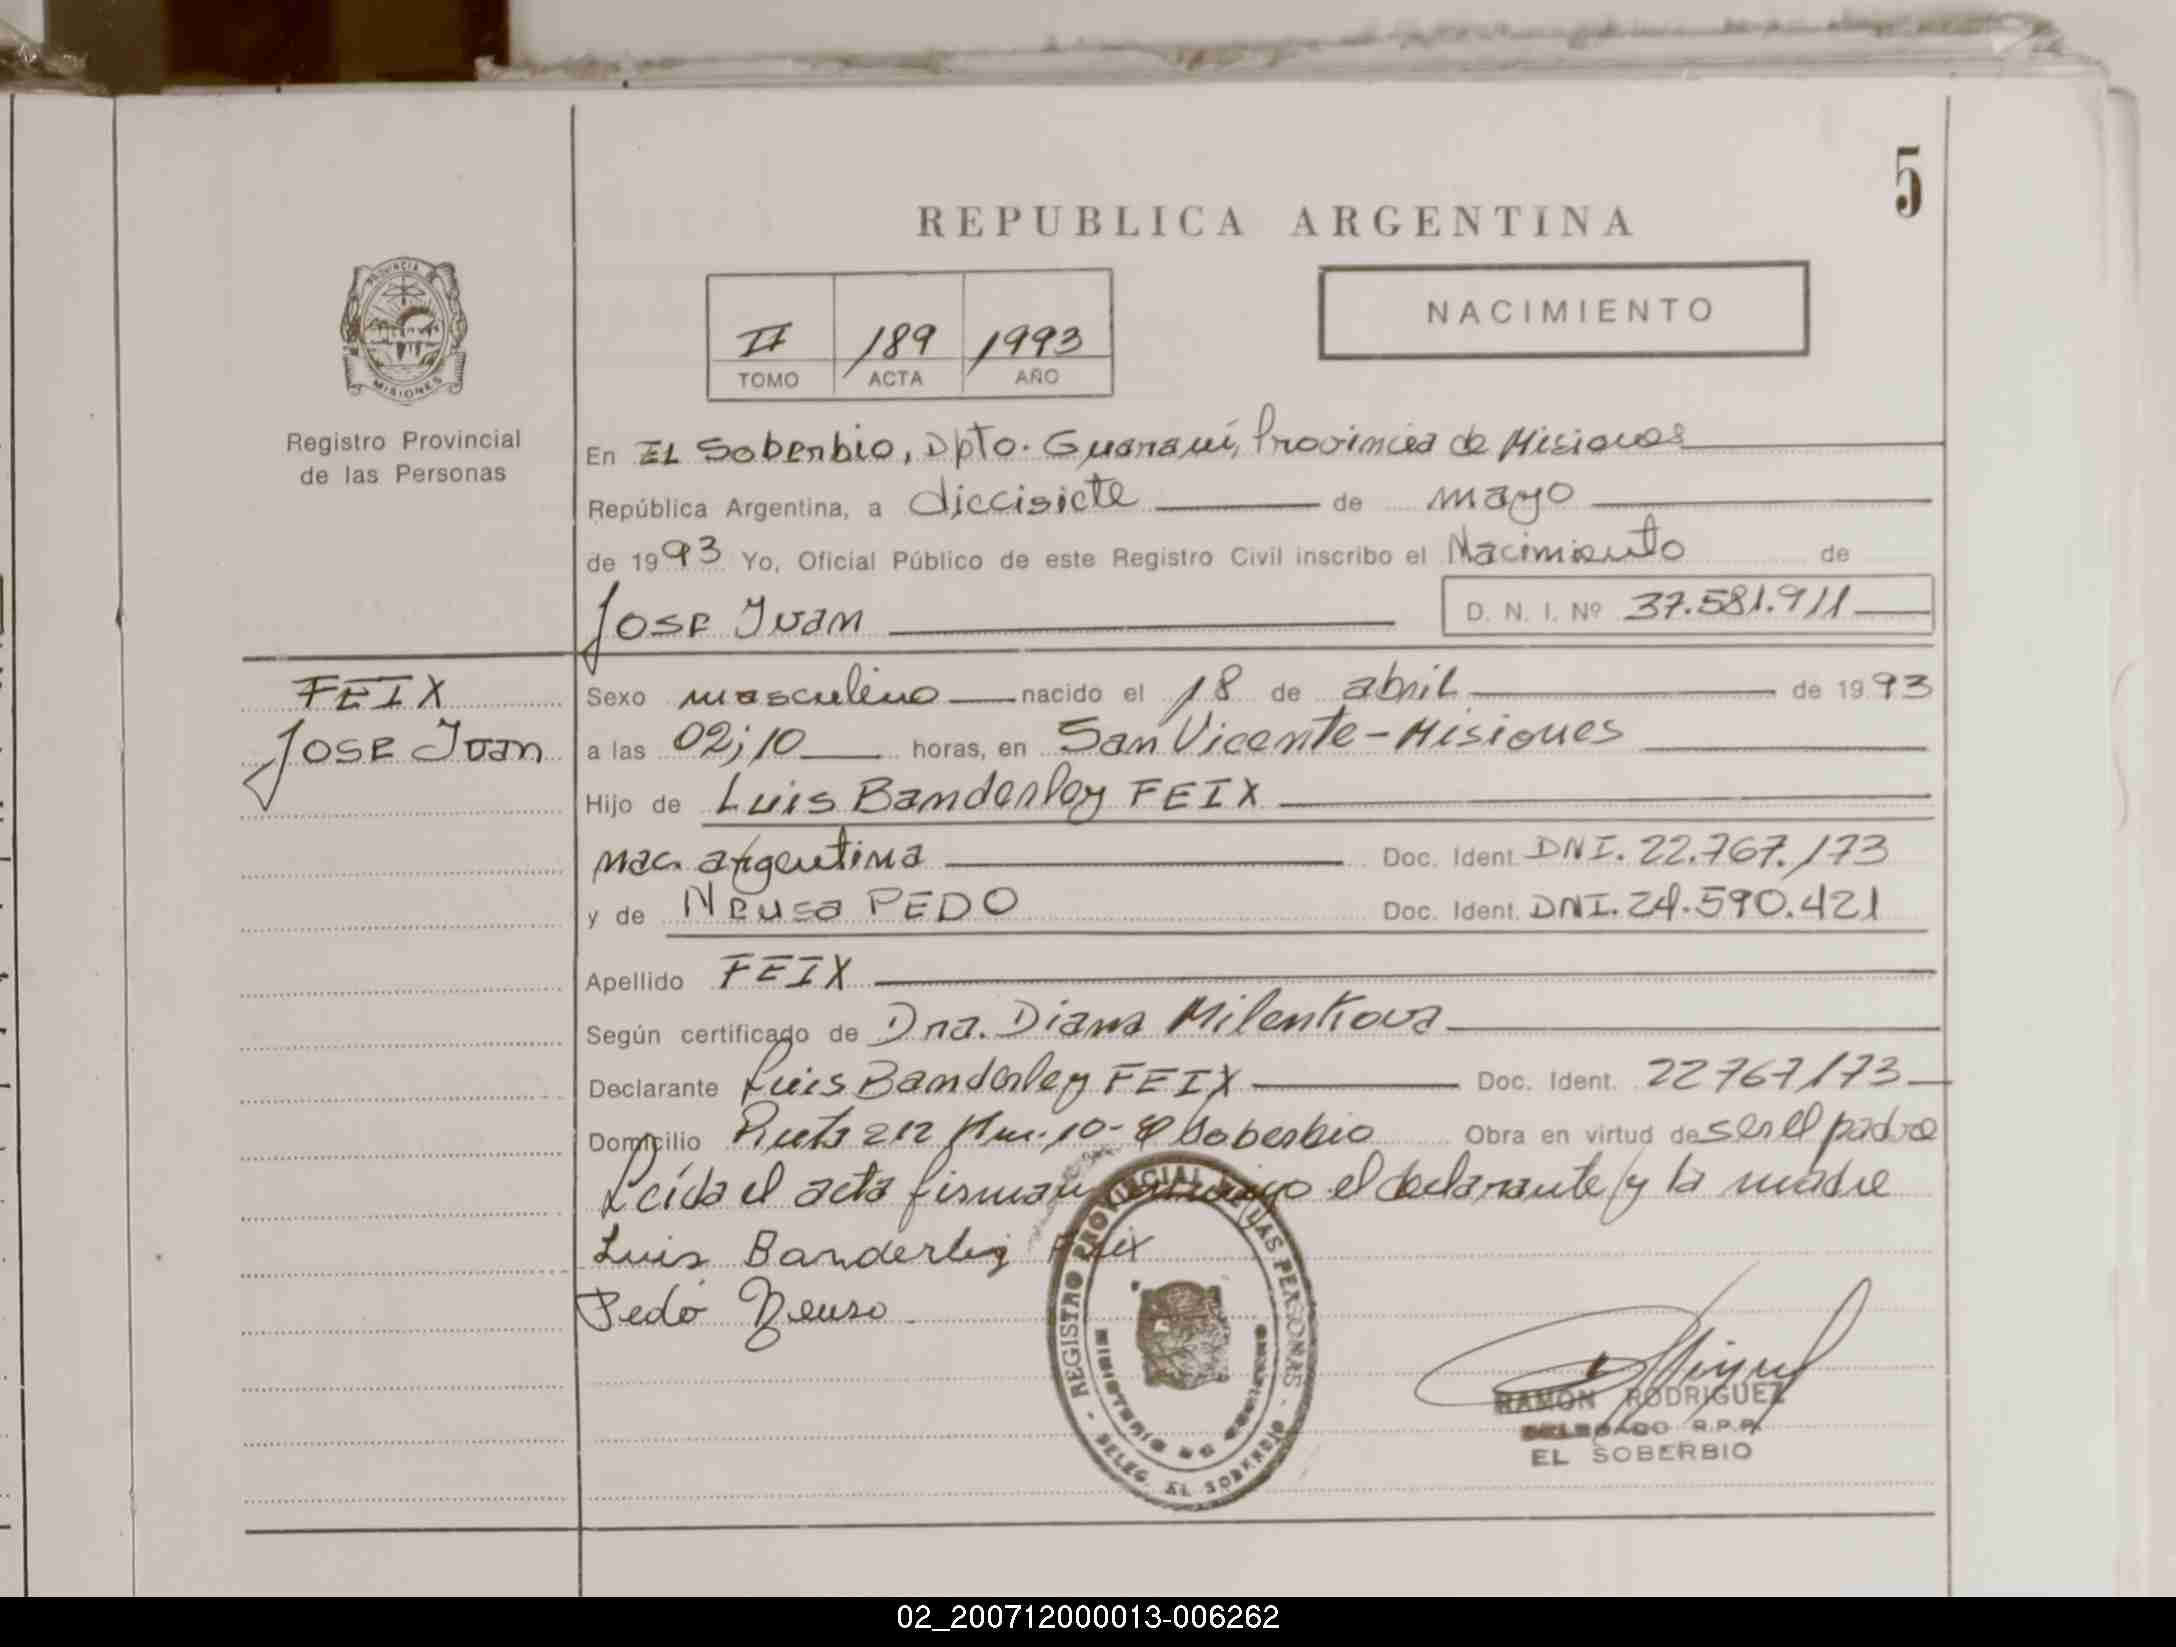 5
REPUBLICA ARGENTINA
II 189 1993
TOMO ACTA AÑO
NACIMIENTO
PROVINCIA DE
MISIONES
Registro Provincial
de las Personas
En EL Soberbio, Dpto. Guaraní, Provincia de Misiones
República Argentina, a diecisiete de mayo
de 1993 Yo, Oficial Público de este Registro Civil inscribo el Nacimiento de
Jose Juan D. N. I. Nº 37.581.911
FEIX
Jose Juan
Sexo masculino nacido el 18 de abril de 1993
a las 02;10 horas, en San Vicente-Misiones
Hijo de Luis Banderley FEIX
nac. argentina Doc. Ident. DNI. 22.767.173
y de Neusa PEDO Doc. Ident. DNI. 24.590.421
Apellido FEIX
Según certificado de Dra. Diana Milenkova
Declarante Luis Banderley FEIX Doc. Ident. 22767173
Domicilio Ruta 212 Km. 10- El Soberbio Obra en virtud de ser el padre
Leída el acta firman conmigo el declarante y la madre
Luis Banderley Feix
Pedó Neusa
REGISTRO PROVINCIAL DE LAS PERSONAS
- DELEG. EL SOBERBIO -
MINISTERIO DE GOBIERNO
RAMON RODRIGUEZ
DELEGADO R.P.P.
EL SOBERBIO
02_200712000013-006262